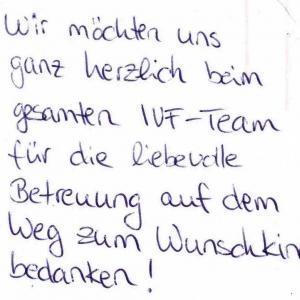 Wir möchten uns
ganz herzlich beim
gesamten IVF-Team
für die liebevolle
Betreuung auf dem
Weg zum Wunschkin
bedanken!